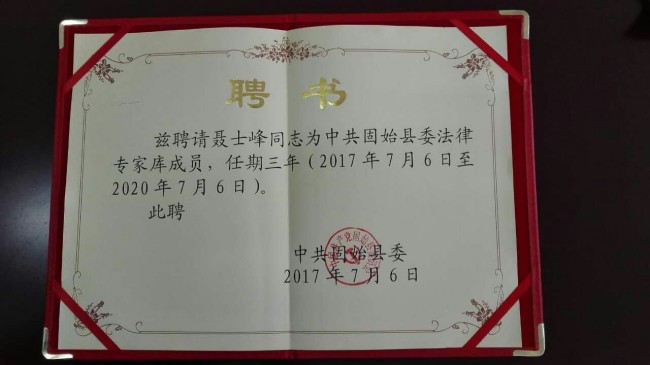 聘书
兹聘请聂士峰同志为中共固始县委法律
专家库成员，任期三年（2017年7月6日至
2020年7月6日）。
此聘
中共固始县委
2017年7月6日